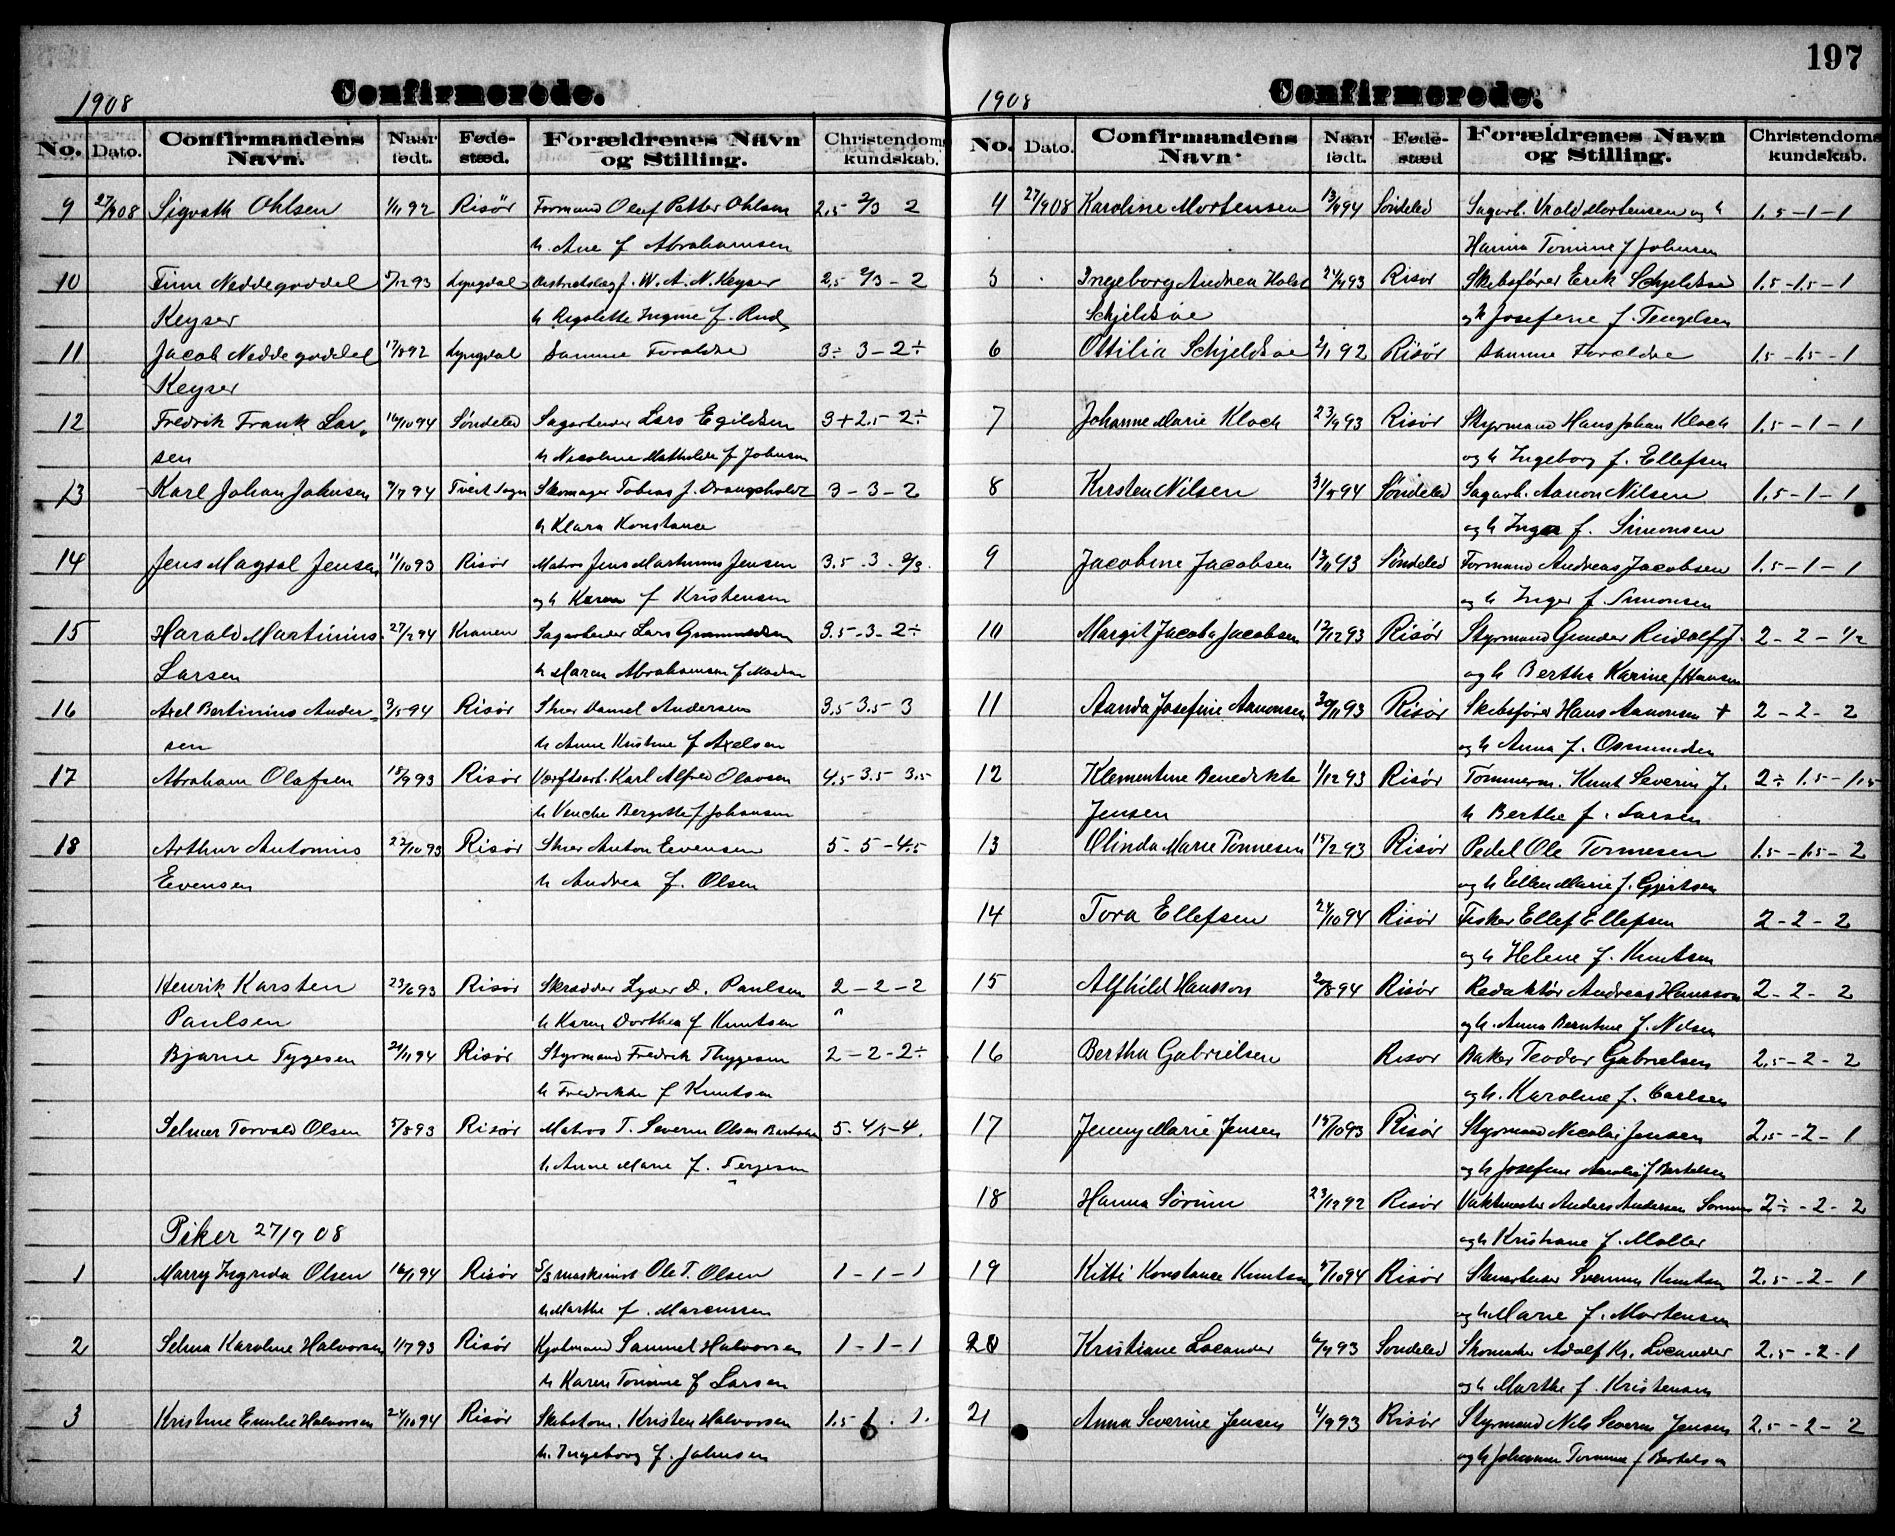 197
1908 Confirmerede.
No. Dato. Confirmandens Navn. Naar født. Fødested. Forældrenes Navn og Stilling. Christendomskundskab.
9 27/9 08 Sigvath Ohlsen 1/11 92 Risör Formand Oluf Petter Ohlsen 2,5 2/3 2
h. Ane f Abrahamsen
10 Finn Neddegoddel 5/12 93 Lyngdal Distriktslægf. W. A. N. Keyser 2,5 2/3 - 2
Keyser h Regolette Ingine f. Rud
11 Jacob Neddegoddel 17/8 92 Lyngdal Samme Forældre 3÷ 3 - 2÷
Keyser
12 Fredrik Frank Lar- 16/10 94 Søndeled Sagarbeider Lars Egildsen 3+ 2,5 - 2÷
sen h Nicoline Mathilde f Johnsen
13 Karl Johan Johnsen 9/7 94 Tvedt Sogn Skomager Tobias J. Drangsholdt 3 - 3 - 2
h Klara Konstance
14 Jens Magdal Jensen 11/10 93 Risør Matros Jens Martinius Jensen 3.5 - 3 - 2/3.
og h Karen f Kristensen
15 Harald Martinius 27/2 94 Kranen Sagarbeider Lars 3.5 - 3 - 2÷
Larsen h Maren Abrahamsen f Madsen
16 Axel Bertinius Ander- 3/5 94 Risør Skrer Daniel Andersen 3.5 - 3.5 - 3
sen h Anne Kristine f Axelsen
17 Abraham Olafsen 18/9 93 Risør Værftsarb. Karl Alfred Olavsen 4.5 - 3.5 - 3.5
h Venche Bergitte f Johansen
18 Arthur Antonius 22/10 93 Risør Skrer Anton Evensen 5 - 5 - 4.5
Evensen h Andrea f. Olsen
Henrik Karsten 23/6 93 Risør Skrædder Lyder D. Paulsen 2 - 2 - 2
Paulsen h Karen Dorthea f Knutsen "
Bjarne Tygesen 21/11 94 Risør Styrmand Fredrik Thygesen 2 - 2 - 2÷
h Fredrikke f Knutsen
Selmer Torvald Olsen 5/8 93 Risør Matros T. Severin Olsen 5 - 4/5 - 4.
h Anne Marie f. Terjesen
Piker 27/9 08
1 Marry Ingrida Olsen 16/1 94 Risør D/S maskinist Ole T. Olsen 1 - 1 - 1
h Marthe f. Marcussen
2 Selma Karoline Halvorsen 1/7 93 Risør Kjølmand Samuel Halvorsen 1 - 1 - 1
h Karen Tomine f Larsen
3 Kristine Emilie Halvorsen 24/10 94 Risør Skibstøm. Kristen Halvorsen 1.5 - 1 - 1.
h. Ingeborg f. Johnsen
1908 Confirmerede.
No. Dato. Confirmandens Navn. Naar født. Fødested Forældrenes Navn og Stilling. Christendomskundskab.
4 27/9 08 Karoline Mortensen 13/4 94 Søndeled Sagarb. Vrold Mortensen og h 1.5 - 1 - 1
Hanna Tomine f Johnsen
5 Ingeborg Andrea Holst 24/9 93 Risør Skibsfører Erik Schjeldsøe 1.5 - 1.5 - 1
Schjeldsøe og h Josefine f. Tengelsen
6 Ottilia Schjeldsøe 2/1 92 Risør Samme Forældre 1.5 - 1.5 - 1
7 Johanne Marie Kloch 23/9 93 Risør Styrmand Hans Johan Kloch 1.5 - 1 - 1
og h Ingeborg f. Ellefsen
8 Kirsten Nilsen 31/5 94 Søndeled Sagarb. Aanon Nilsen 1.5 - 1 - 1
og h Inger f. Simonsen
9 Jacobine Jacobsen 13/11 93 Søndeled Formand Andreas Jacobsen 1.5 - 1 - 1
og h Inger f. Simonsen
10 Margit Jacoba Jacobsen 12/12 93 Risør Styrmand Gunder Rudolf J. 2 - 2 - 1/2
og h Bertha Karine f Hansen
11 Aanda Josefine Aanonsen 30/11 93 Risør Skibsfører Hans Aanonsen + 2 - 2 - 2
og h Anna f. Osmundsen
12 Klementine Benedikte 1/12 93 Risør Tømmerm. Knut Severin J. 2÷ 1.5 - 1.5
Jensen h Berthe f. Larsen
13 Olinda Marie Tønnesen 15/2 93 Risør Pedel Ole Tønnesen 1.5 - 1.5 - 2
og h Ellen Marie f. Gjertsen
14 Tora Ellefsen 24/10 94 Risør Fisker Ellef Ellefsen 2 - 2 - 2
og h Helene f. Knutsen
15 Alfhild Hansson 20/8 94 Risør Redaktør Andreas Hansson 2 - 2 - 2
og h. Anna Berntine f. Nilsen
16 Bertha Gabrielsen Risør Baker Teodor Gabrielsen 2.5 - 2 - 2
og h. Karoline f. Carlsen
17 Jenny Marie Jensen 15/10 93 Risør Styrmand Nicolai Jensen 2.5 - 2 - 1
og h Josefine Amalie f Bertelsen
18 Hanna Sørum 23/12 92 Risør Vaktmester Anders Andersen Sørum 2÷ - 2 - 2
og h Kristiane f. Møller
19 Kitti Konstance Knutsen 5/10 94 Risør Stenarbeider Svenning Knutsen 2.5 - 2 - 1
og h Marie f. Mortensen
20 Kristiane Locander 6/9 93 Søndeled Skomaker Adolf Kr. Locander 2.5 - 2 - 1
og h Marthe f. Kristensen
21 Anna Severine Jensen 4/9 93 Risør Styrmand Nils Severin Jensen 2.5 - 2 - 2
og h Johanne Tomine f Bertelsen